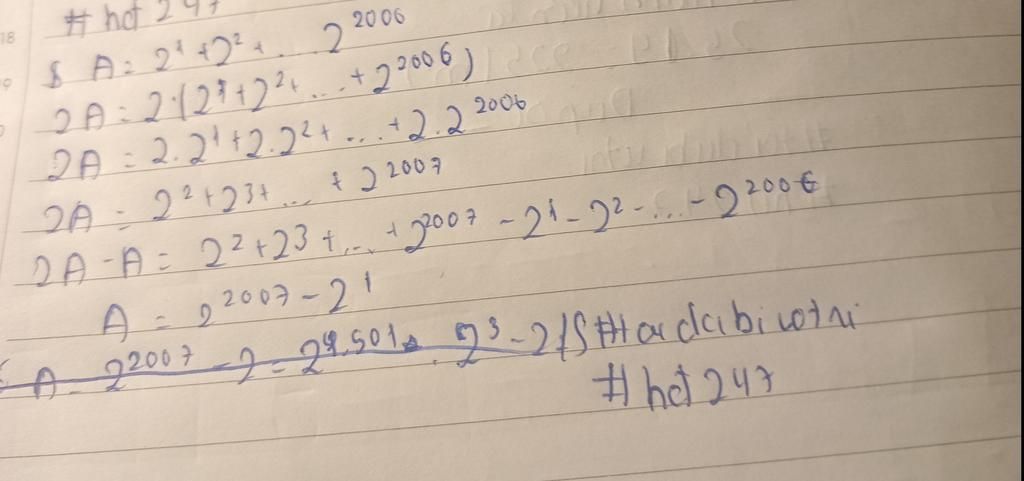 # hot 247
A = 2¹ + 2² + ... 2²⁰⁰⁶
2A = 2.(2¹ + 2² + ... + 2²⁰⁰⁶)
2A = 2.2¹ + 2.2² + ... + 2.2²⁰⁰⁶
2A = 2² + 2³ + ... + 2²⁰⁰⁷
2A - A = 2² + 2³ + ... + 2²⁰⁰⁷ - 2¹ - 2² - ... - 2²⁰⁰⁶
A = 2²⁰⁰⁷ - 2¹
A = 2²⁰⁰⁷ - 2 = 2⁴·⁵⁰¹ . 2³ - 2
# hot 247